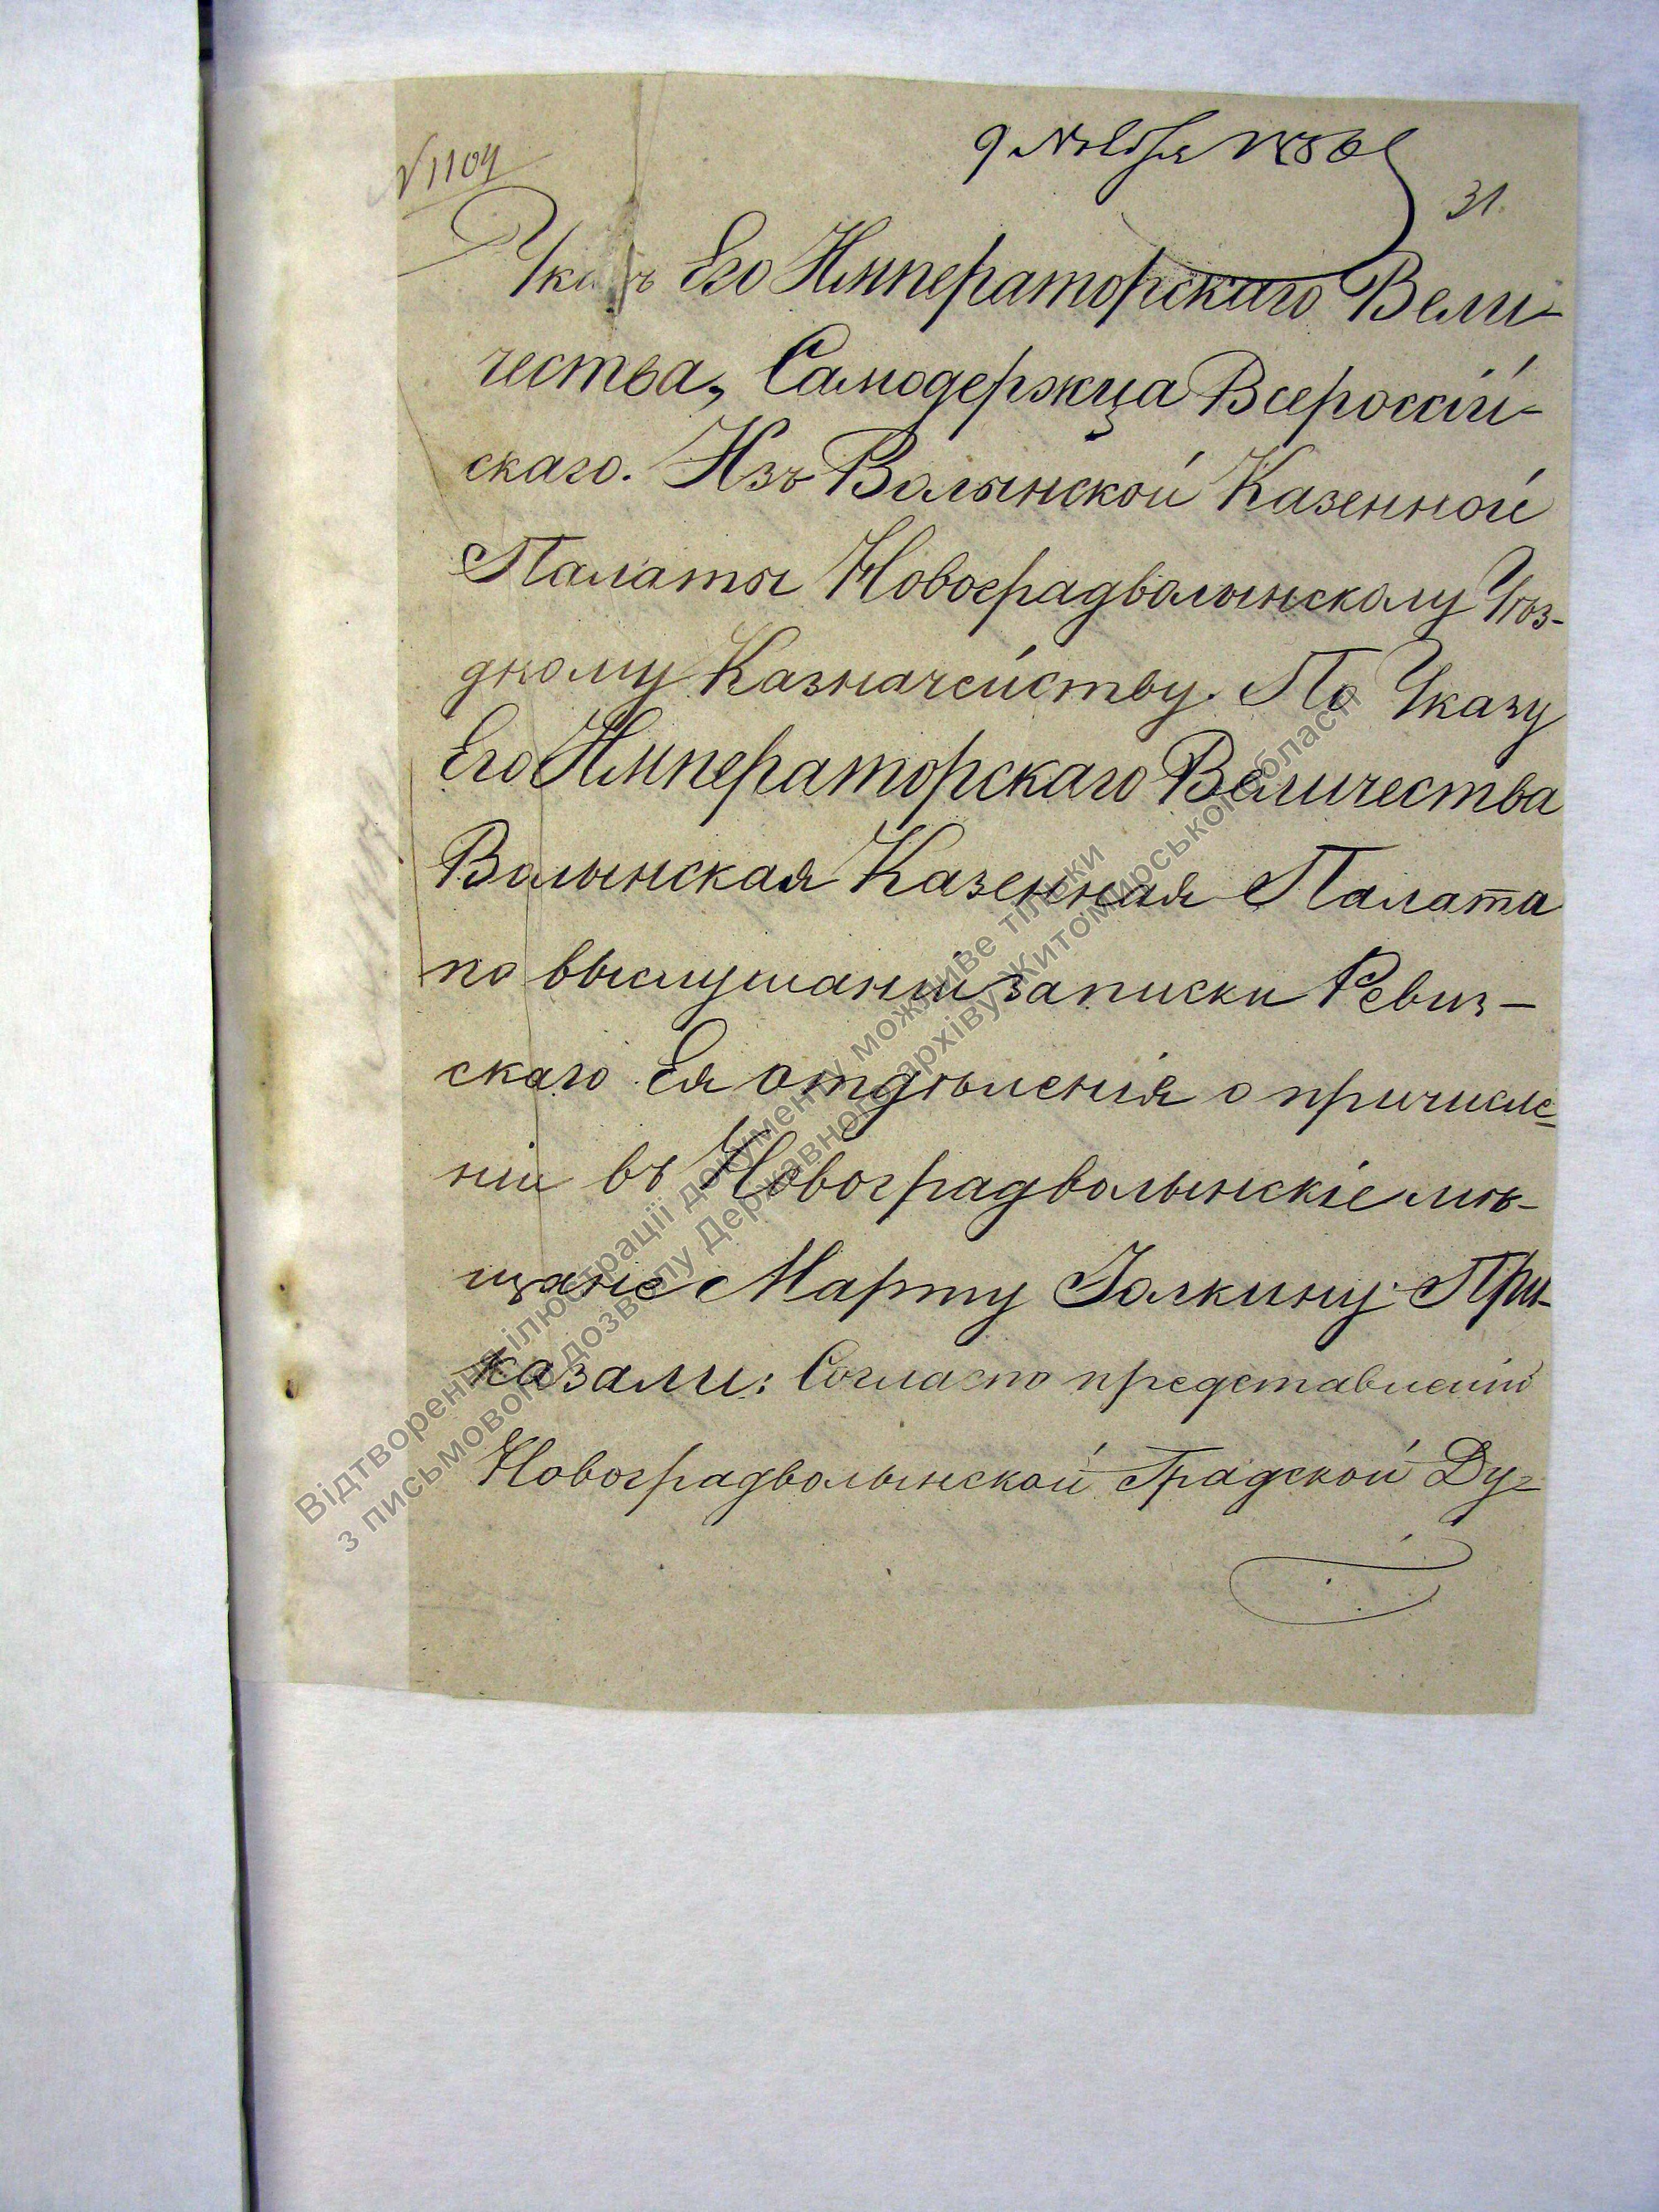 № 1104
9 Ноября
31.
Указъ Его Императорскаго Вели-
чества, Самодержца Всероссій-
скаго. Изъ Волынской Казенной
Палаты Новоградволынскому Уѣз-
дному Казначейству. По Указу
Его Императорскаго Величества
Волынская Казенная Палата
по выслушаніи записки Ревиз-
скаго Ея отдѣленія о причисле-
ніи въ Новоградволынскіе мѣ-
щане Марту Галкину: При-
казали: Согласно представленію
Новоградволынской Градской Ду-
Відтворення ілюстрації документу можливе тільки
з письмового дозволу Державного архіву Житомирської області